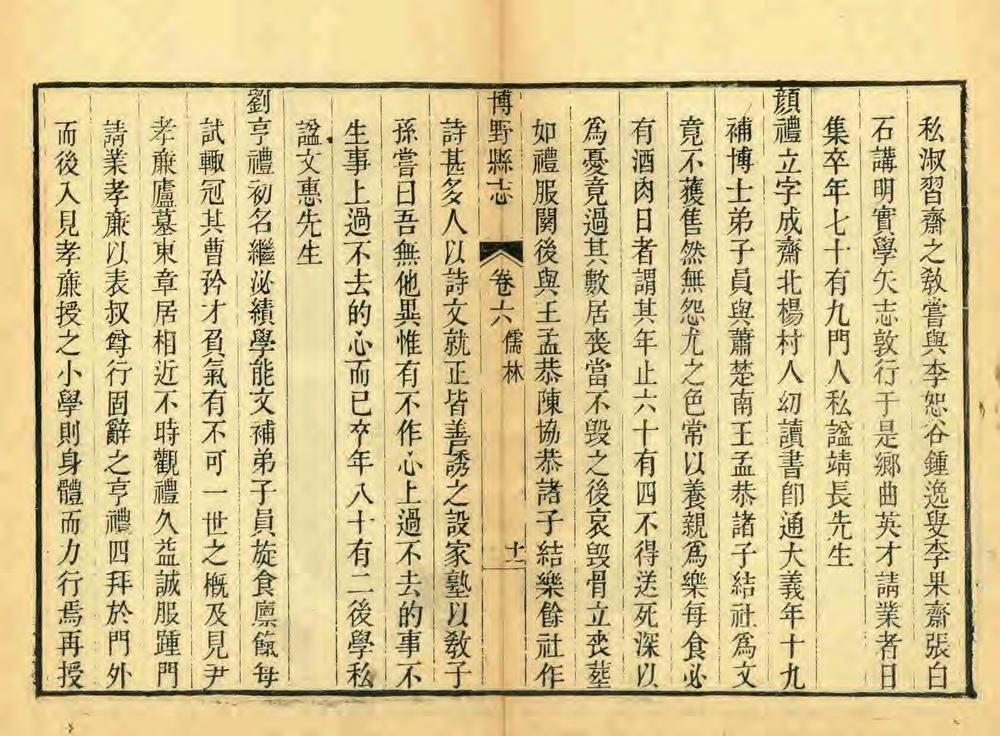 私淑習齋之敎嘗與李恕谷鍾逸叟李果齋張白
石講明實學矢志敦行于是鄉曲英才請業者日
集卒年七十有九門人私諡靖長先生
顏禮立字成齋北楊村人幼讀書卽通大義年十九
補博士弟子員與蕭楚南王孟恭諸子結社爲文
竟不獲售然無怨尤之色常以養親爲樂每食必
有酒肉日者謂其年止六十有四不得送死深以
爲憂竟過其數居喪當不毀之後哀毀骨立喪葬
如禮服闋後與王孟恭陳協恭諸子結樂餘社作
博野縣志 卷六 儒林 十一
詩甚多人以詩文就正皆善誘之設家塾以敎子
孫嘗曰吾無他異惟有不作心上過不去的事不
生事上過不去的心而已卒年八十有二後學私
諡文惠先生
劉亨禮初名繼泌績學能文補弟子員旋食廩餼每
試輙冠其曹矜才負氣有不可一世之槪及見尹
孝亷廬墓東章居相近不時觀禮久益誠服踵門
請業孝亷以表叔尊行固辭之亨禮四拜於門外
而後入見孝亷授之小學則身體而力行焉再授